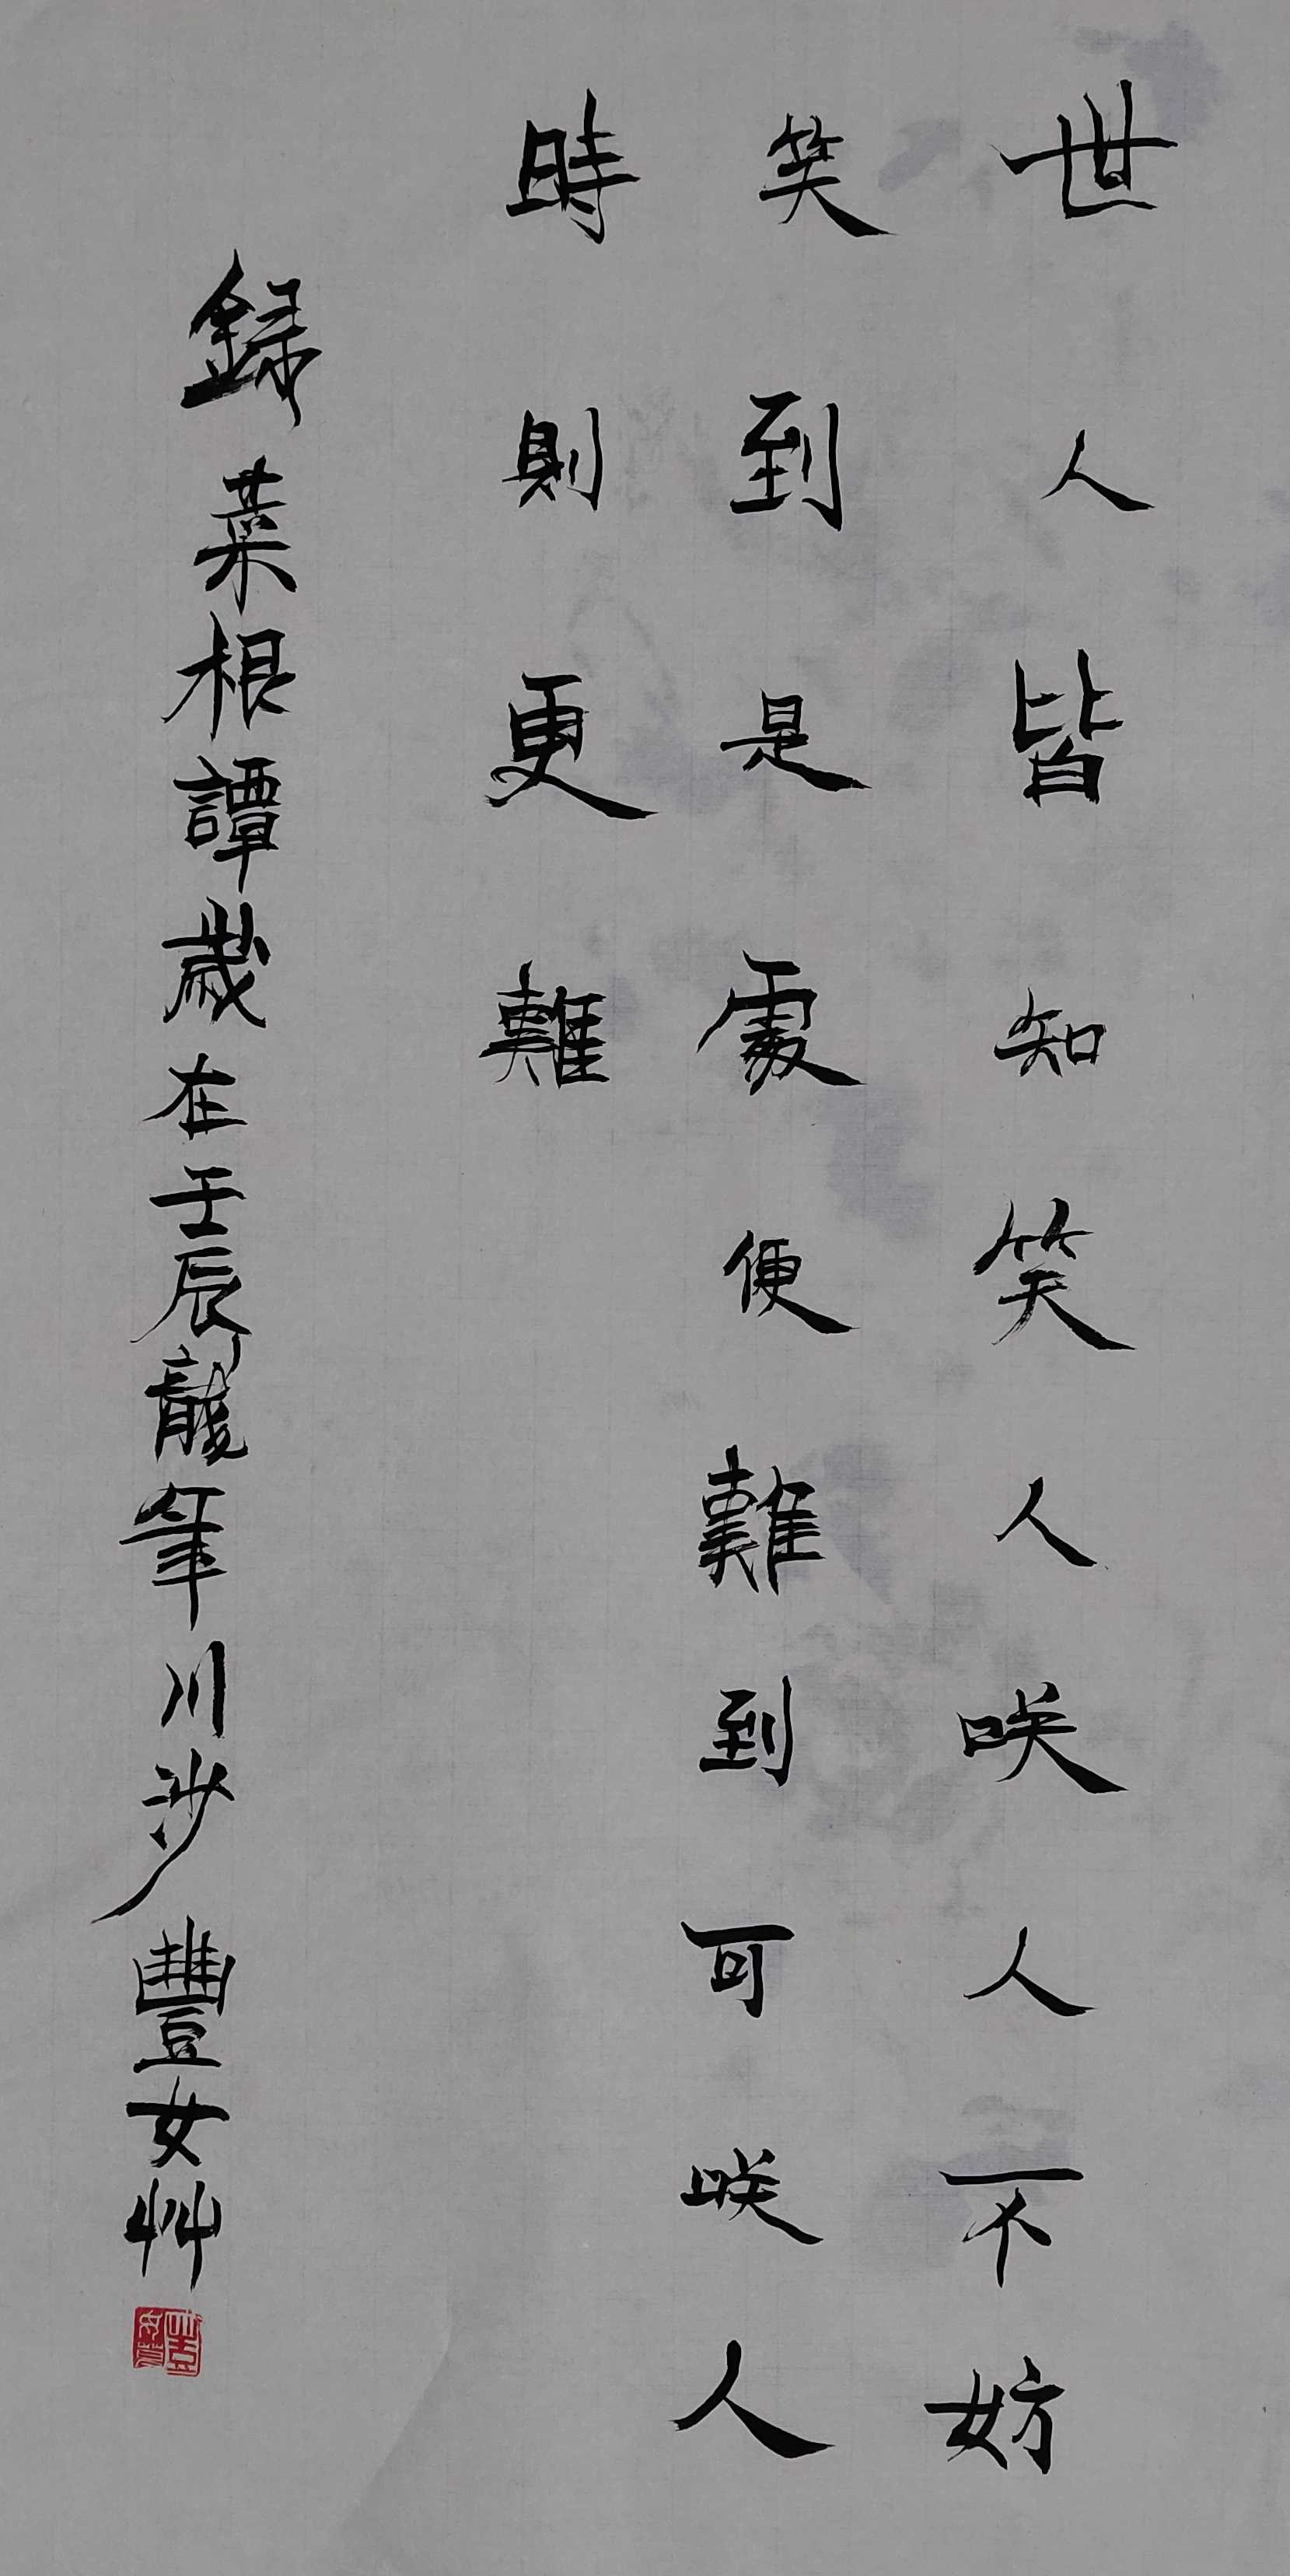 世人皆知笑人咲人不妨
笑到是處便難到可咲人
時則更難
錄菜根譚歲在壬辰龍年川沙豐女艸